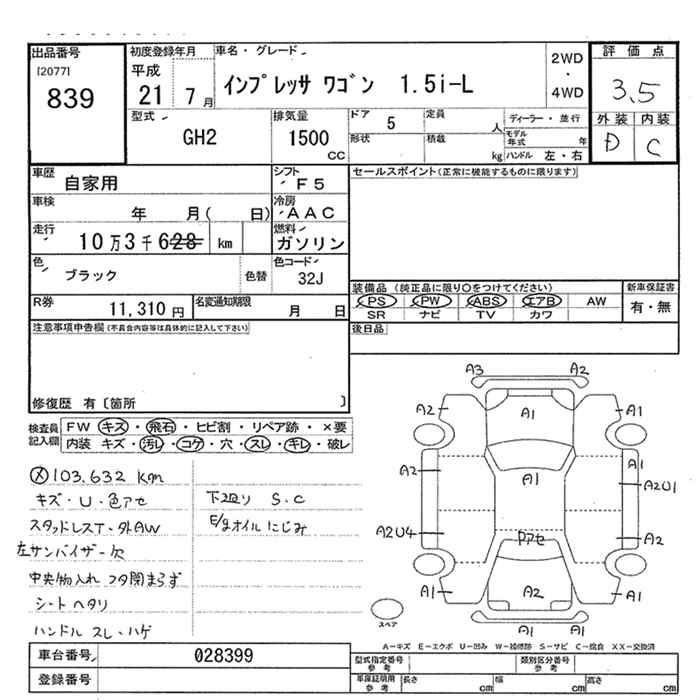 出品番号 初度登録年月 車名・グレード 評価点
[2077] 平成 2WD
839 21 7月 インプレッサ ワゴン 1.5i-L ・ 3.5
4WD
型式 排気量 ドア 5 定員 人 ディーラー・並行 外装 内装
GH2 1500 cc 形状 積載 kg モデル年式 年 D C
ハンドル 左・右
車歴 自家用 シフト F5 セールスポイント(正常に機能するものに限ります)
車検 年 月( 日) 冷房 AAC
走行 10万3千628 km 燃料 ガソリン
色 ブラック 色替 色コード 32J
装備品 (純正品に限り○をつけてください) 新車保証書
PS PW ABS エアB AW 有・無
SR ナビ TV カワ
R券 11,310円 名変通知期限 月 日
注意事項申告欄(不具合内容等は具体的に記入して下さい) 後日品
修復歴 有〔箇所 〕
検査員記入欄 FW キズ・飛石・ヒビ割・リペア跡・×要
内装 キズ・汚レ・コゲ・穴・スレ・キレ・破レ
A3 A2
A2 A1 A1
A2 A1 A1 A2U1
A2U4 Pアセ A2
A1 A2 A1
A1 A1
スペア
Ⓧ103.632 Km
キズ・U・色アセ 下廻り S.C
スタッドレスT・外AW E/gオイルにじみ
左サンバイザー欠
中央物入れ フタ閉まらず
シートヘタリ
ハンドル スレ・ハゲ
A−キズ E−エクボ U−凹み W−補修跡 S−サビ C−腐食 XX−交換済
車台番号 028399 型式指定番号 参考 類別区分番号 参考
登録番号 車庫証明用 参考 長さ cm 幅 cm 高さ cm